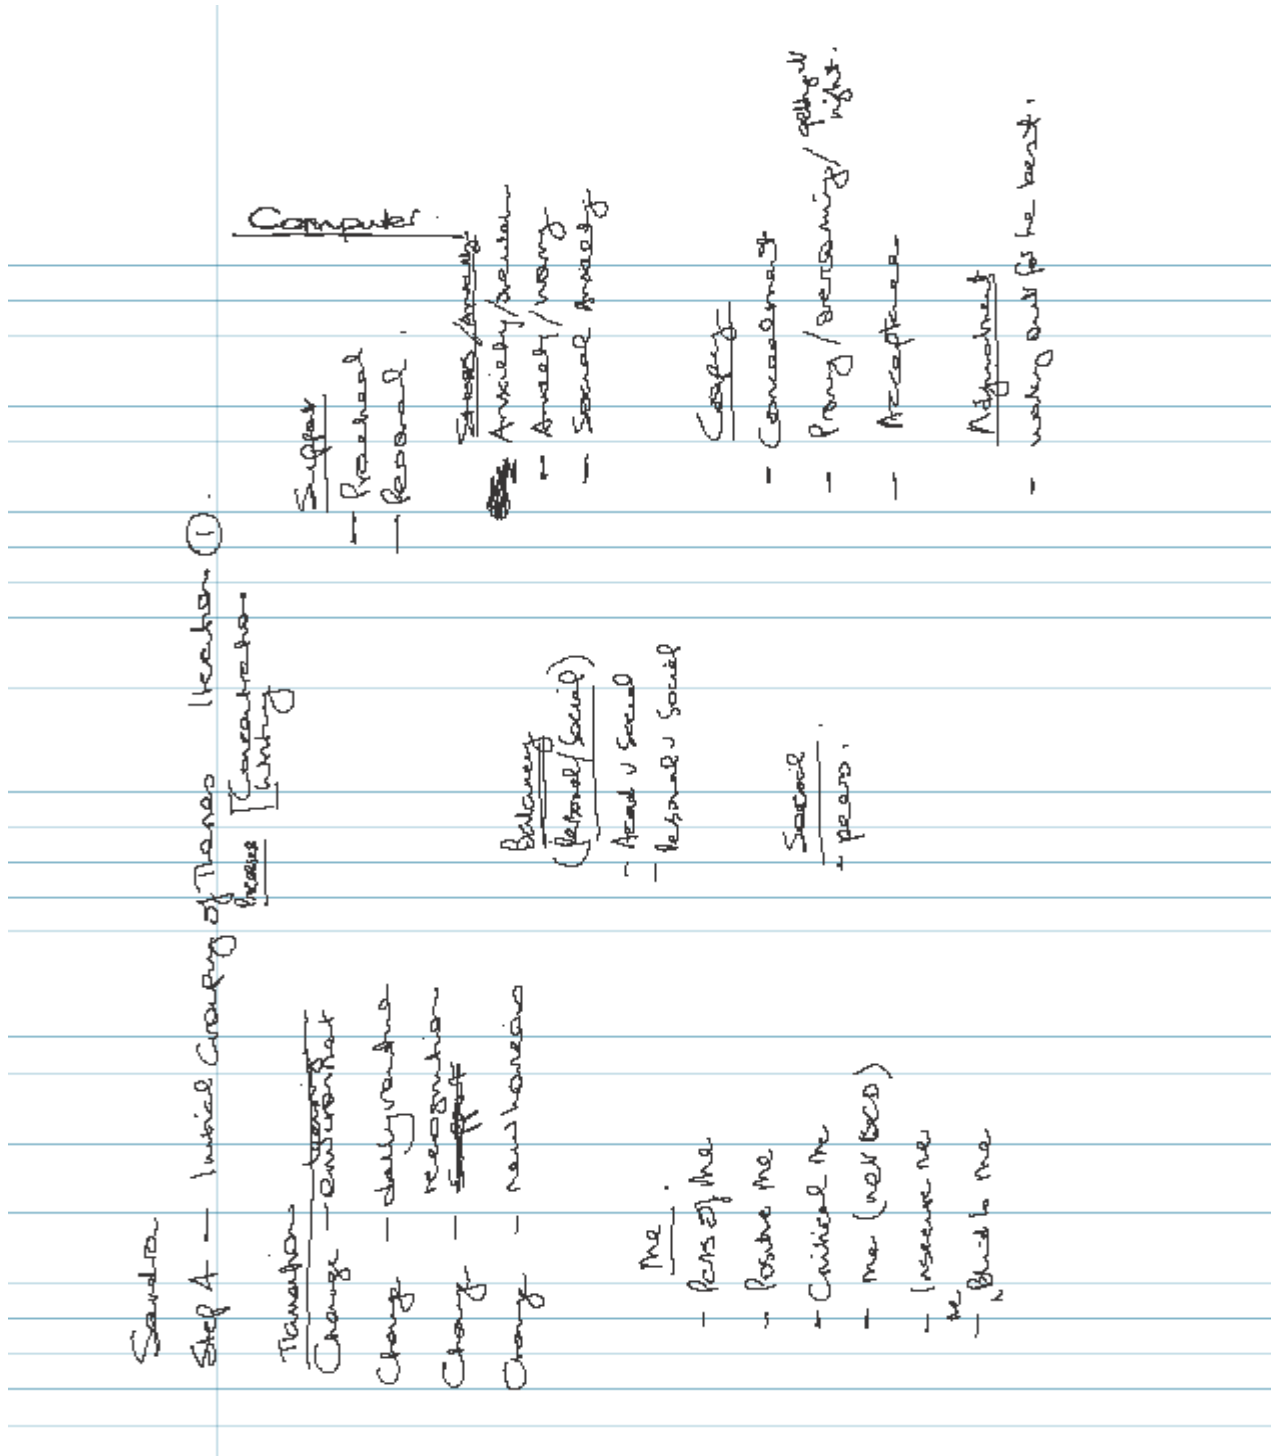 Sandra
Step A — Initial Grouping of Themes Iteration ①.
Processes
Concentration
Writing
Computer
Transition
Change - environment
Change - daily routine
Change - recognition
Change - new horizons
me.
- Parts of me
- Positive me
- Critical me
- me (not BCD)
- Insecure me
- Blind to me
Balancing
(Personal/Social)
- Acad v Social
- Personal v Social
Social
- peers.
Support
- Practical
- Personal.
Stress/Anxiety
Anxiety/
- Anxiety/worry
- Social Anxiety
Coping
- Concealment
- Proving/overcoming/getting it right.
- Acceptance
Adjustment
- working out for the best.